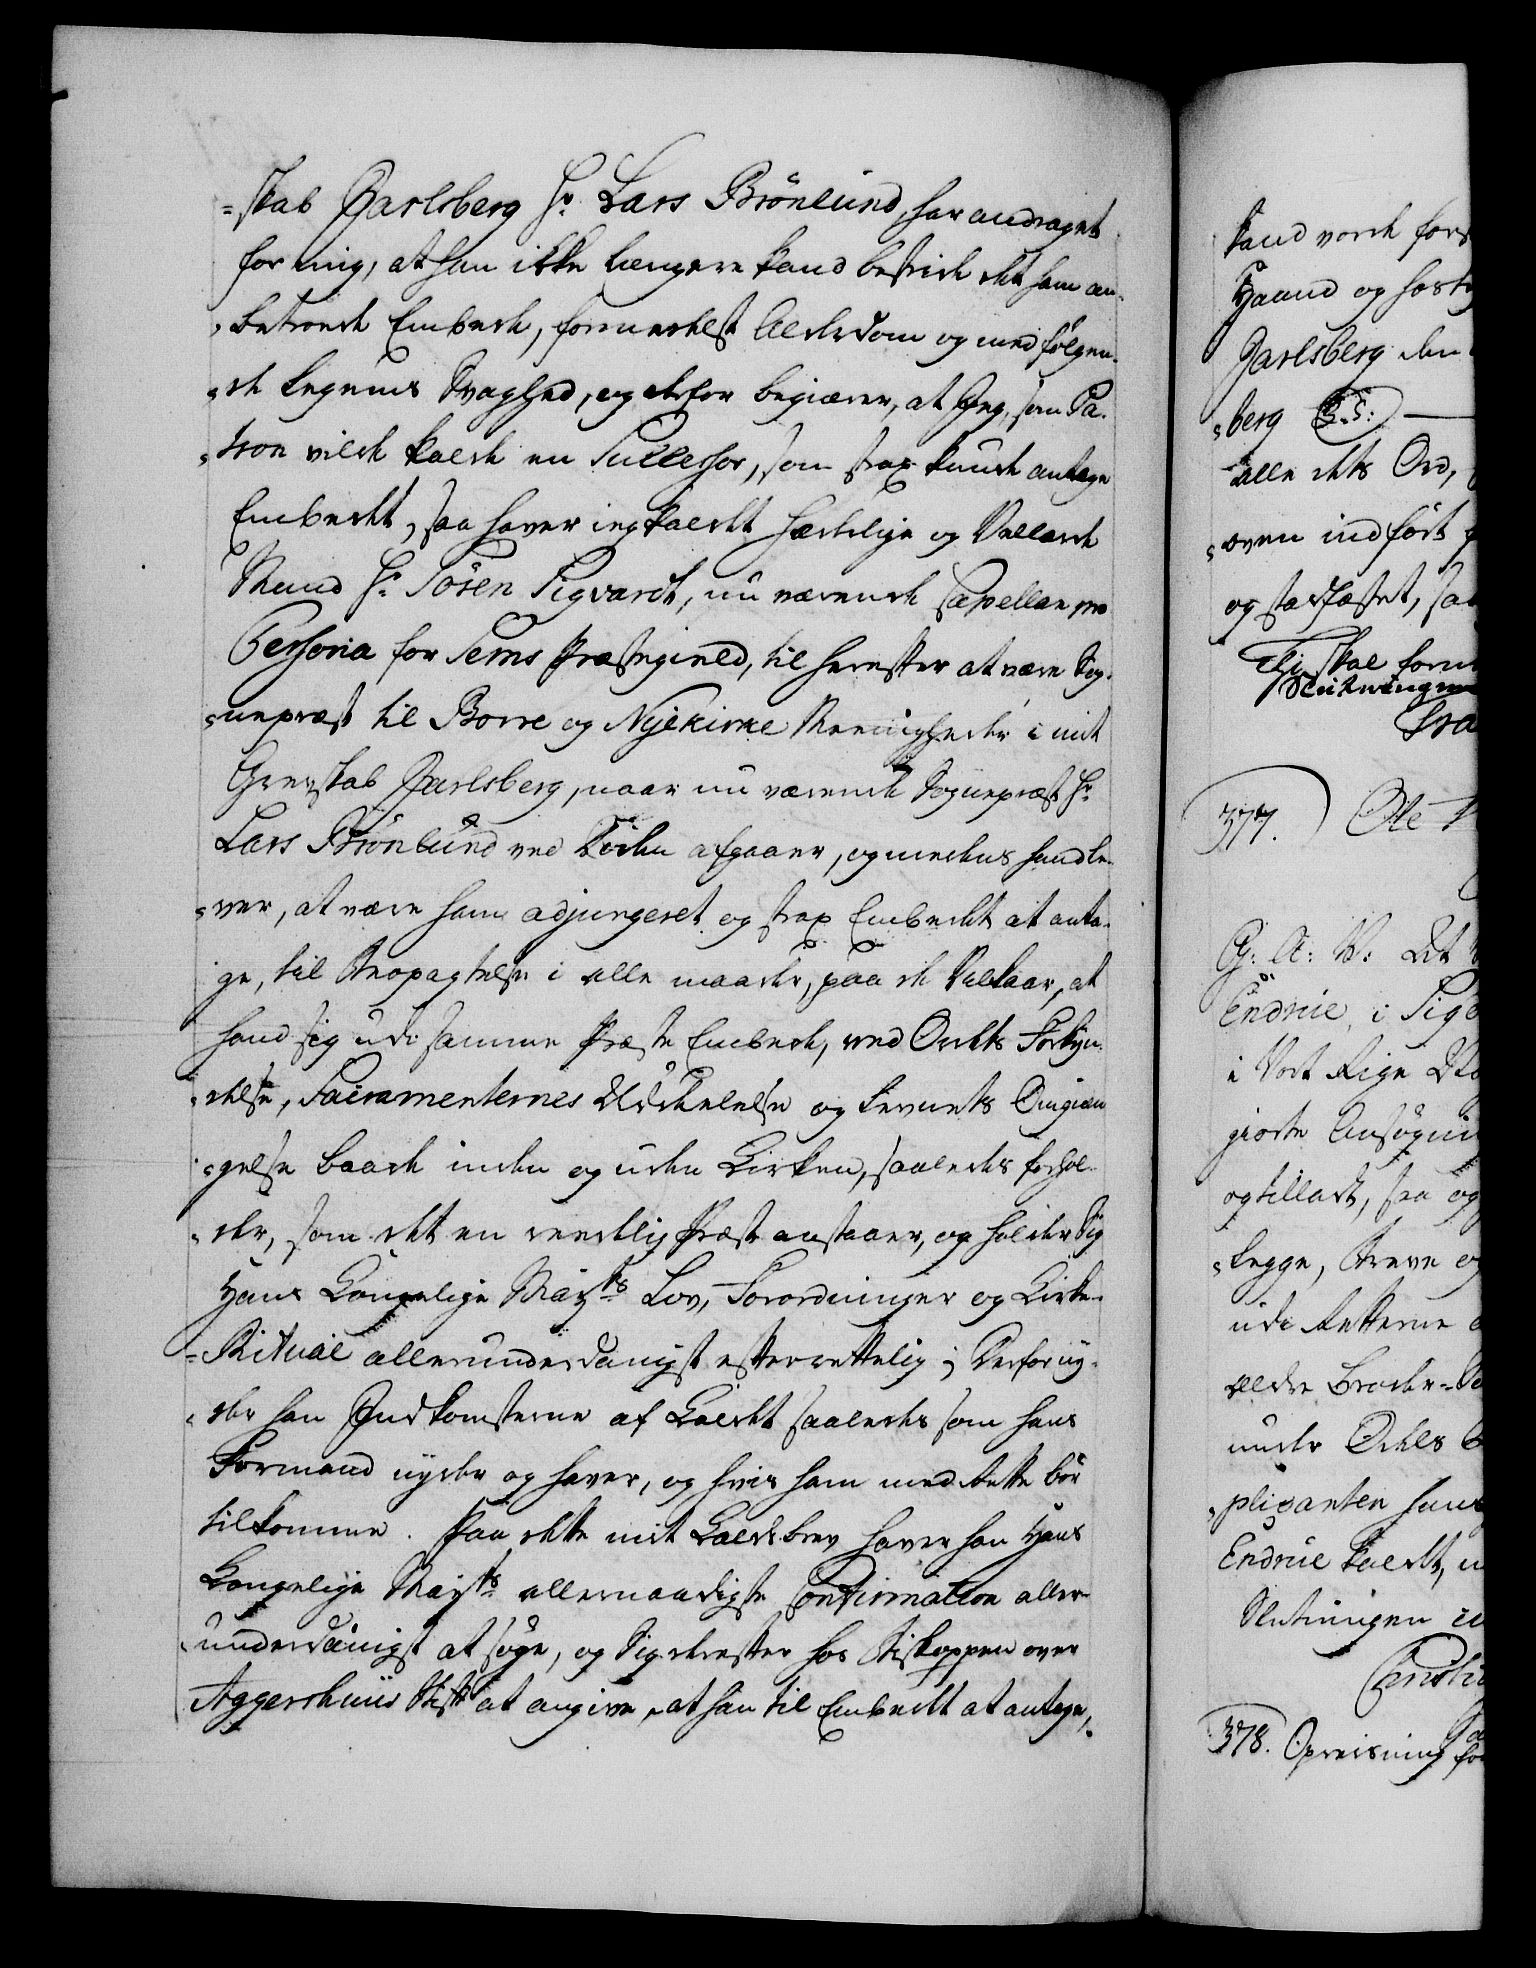 =skab Jarlsberg Hr. Lars Brönlund, har andraget
for mig, at han ikke længere kand bestride det ham an-
betroede Embede, formedelst Alderdom og med følgen-
de Legems Svaghed, og derfor begiærer, at Jeg, som Pa-
tron vilde kalde en Successor, som strax kunde antage
Embedet, saa haver ieg kaldet Hæderlige og Vellærde
Mand Hr. Sören Sigvardt, nu værende Capellan pro
Persona for Sems Præstegield, til herefter at være Sog-
nepræst til Borre og Nykirke Menigheder i mit
Grevskab Jarlsberg, naar nu værende Sognepræst Hr.
Lars Brönlund ved Døden afgaaer, og medens hand le-
ver, at være ham adjungeret og strax Embedet at anta-
ge, til Reopagtelse i alle maader, paa de Vilkaar, at
hand sig udi samme Præste Embede, med Ordets Forkyn-
delse, Sacramenternes Uddeelelse og Levnets Omgiæn-
gelse baade inden og uden Kirken, saaledes forhol-
der, som det en reedelig Præst anstaaer, og holder Sig
Hans Kongelige Mayts Lov, Forordninger og Kirke-
Ritual allerunderdanigst efterrettelig; Derfor ny-
der han Indkomsterne af Kaldet saaledes som hans
Formand nyder og haver, og hvis ham med Rette bör
tilkomme. Paa dette mit Kaldsbrev haver han Hans
Kongelige Mayts allernaadigste Confirmation aller-
underdanigst at søge, og Sig derefter hos Biskoppen over
Aggershuus Stift at angive, at han til Embedet at antage,
kand vorde fors
Haand og hostr
Jarlsberg den
berg (L.S.)
alle dets Ord,
oven indført
og stadfæstet, saa
Thi skal form
Sra
377. Ole
G: A: V: Det
Endrue, i Sig
i Vort Rige
giorte Ansøgnin
og tilladt, saa og
legge, Breve og
udi Retterne
ældre Broder
under Edels
plicanten hans
Endrue kaldet,
Slutningen
Christi
378. Opreisning for